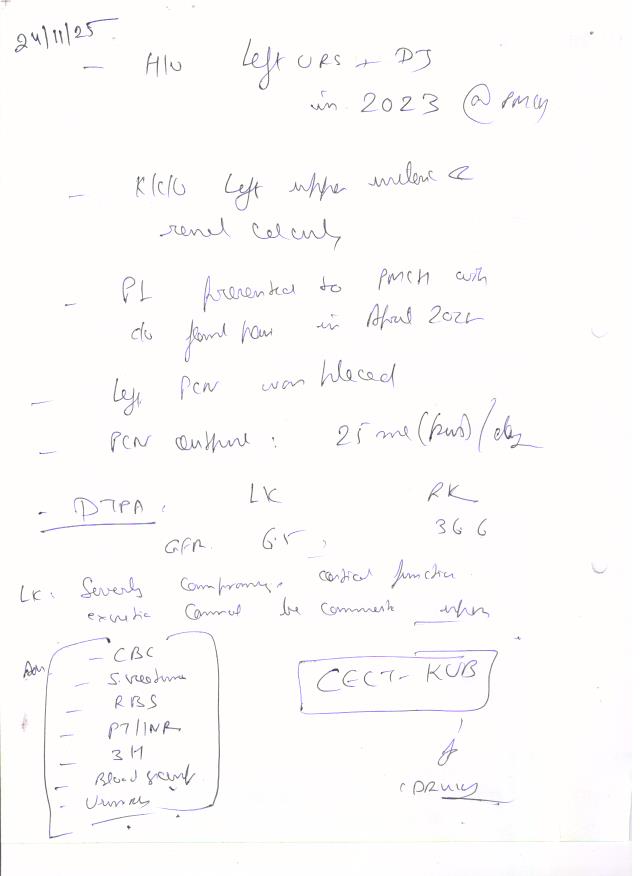 24/11/25
- H/O Left URS + DJ
in 2023 @ PMCH
- K/C/O Left upper ureteric &
renal calculus
- Pt presented to PMCH with
c/o flank pain in April 202
- Left PCN was placed
- PCN output : 25 ml (pus) / day
- DTPA : LK RK
GFR 6.5 36.6
LK : Severely compromise cortical function
excretion cannot be comment upon
Adv
- CBC
- S. creatinine
- RBS
- PT/INR
- 3H
- Blood group
- Urine
CECT - KUB